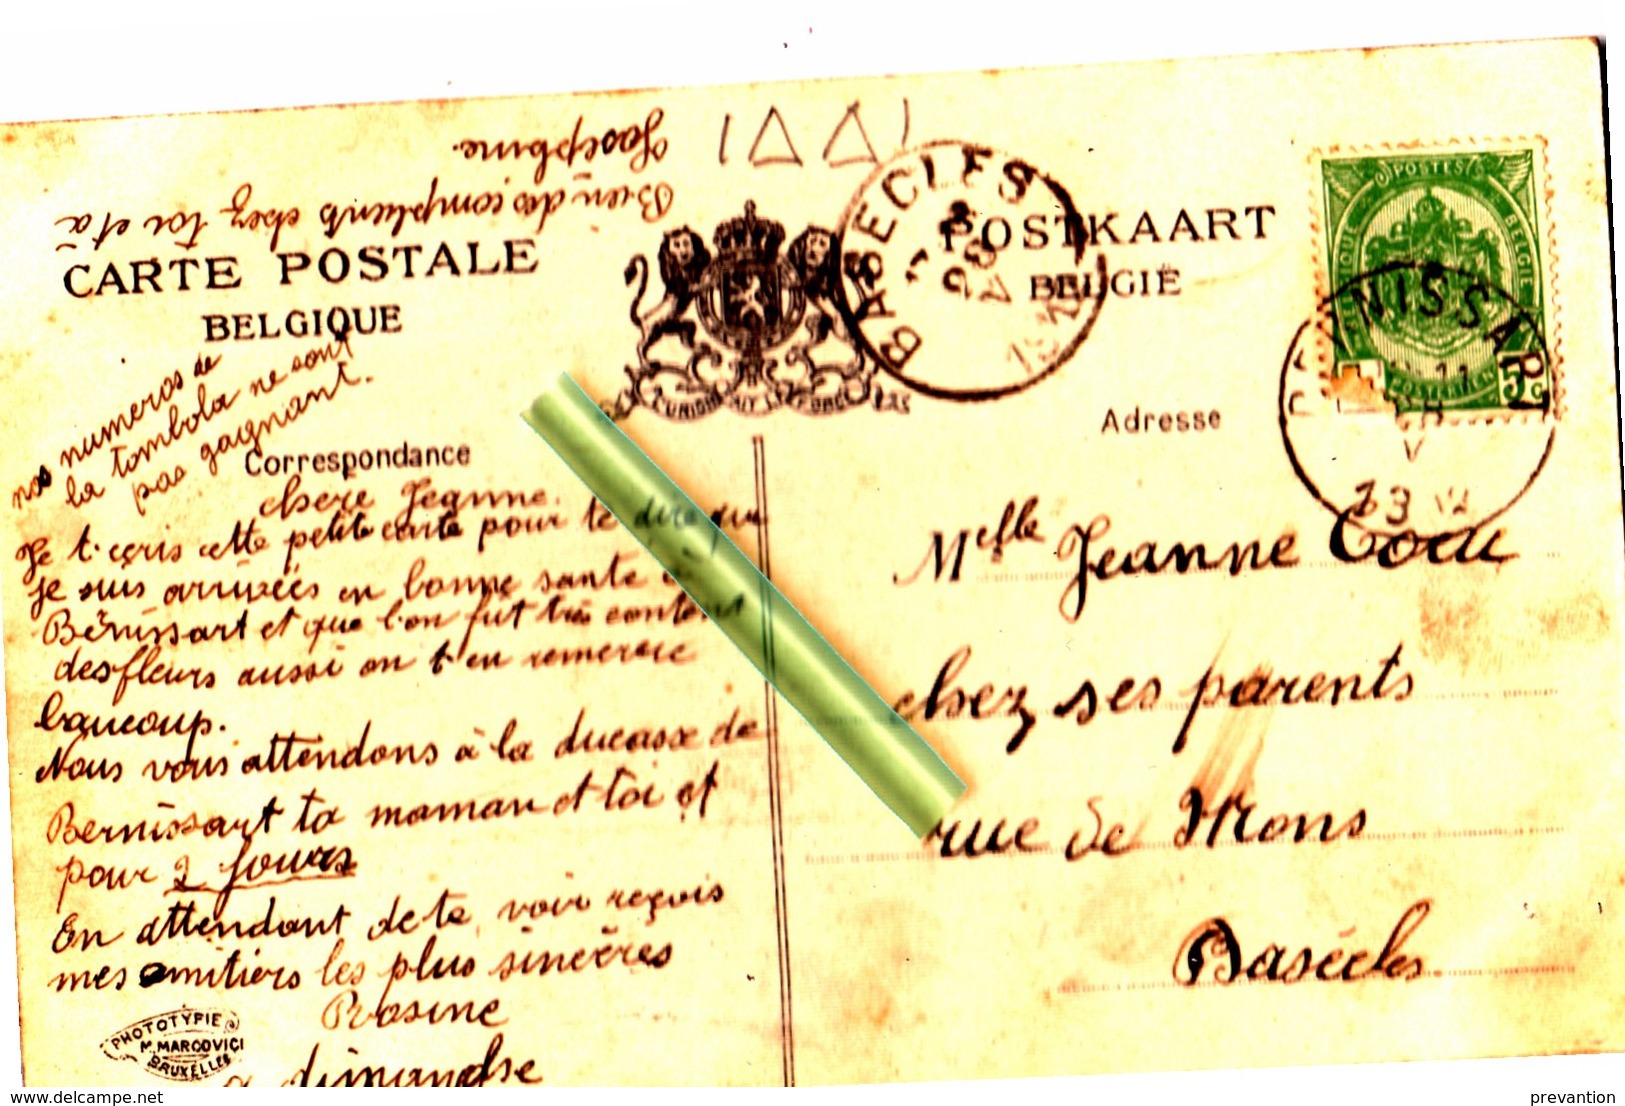 Bien des compliments chez toi et à
Josephine.
CARTE POSTALE
BELGIQUE
POSTKAART
BELGIË
L'UNION FAIT LA FORCE
BASECLES
BERNISSART
11
V
POSTES
BELGIQUE
BELGIË
POSTERIJEN
5c
nos numeros de
la tombola ne sont
pas gagnant.
Correspondance
Adresse
chere Jeanne.
Je t'ecris cette petite carte pour te dire que
je suis arrivées en bonne sante à
Bernissart et que l'on fut très content
des fleurs aussi on t'en remercie
baucoup.
Nous vous attendons à la ducasse de
Bernissart ta maman et toi et
pour 2 jours
En attendant de te voir reçois
mes amitiers les plus sincères
Rosine
a dimanche
Melle Jeanne
chez ses parents
rue de Mons
Basècles
PHOTOTYPIE
M. MARCOVICI
BRUXELLES
delcampe.net
prevantion